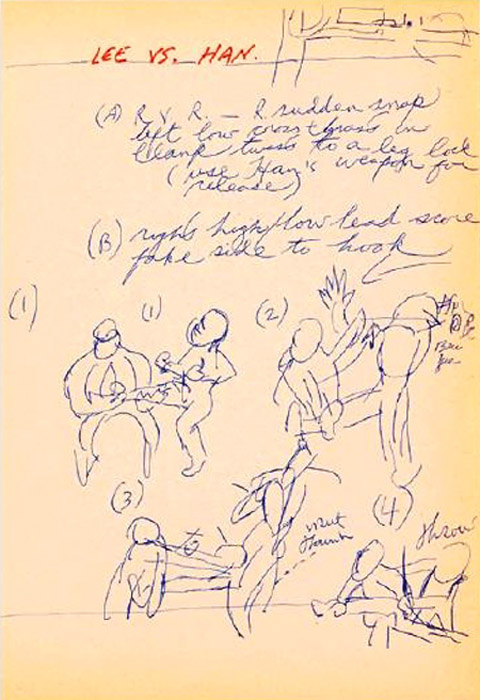 LEE VS. HAN.
(A) R V. R. — R sudden snap
left low cross thrust in
twist to a leg lock
(use Han's weapon for
release)
(B) right high/low lead score
fake side to hook
(1) (1) (2)
(3)
(4)
throw